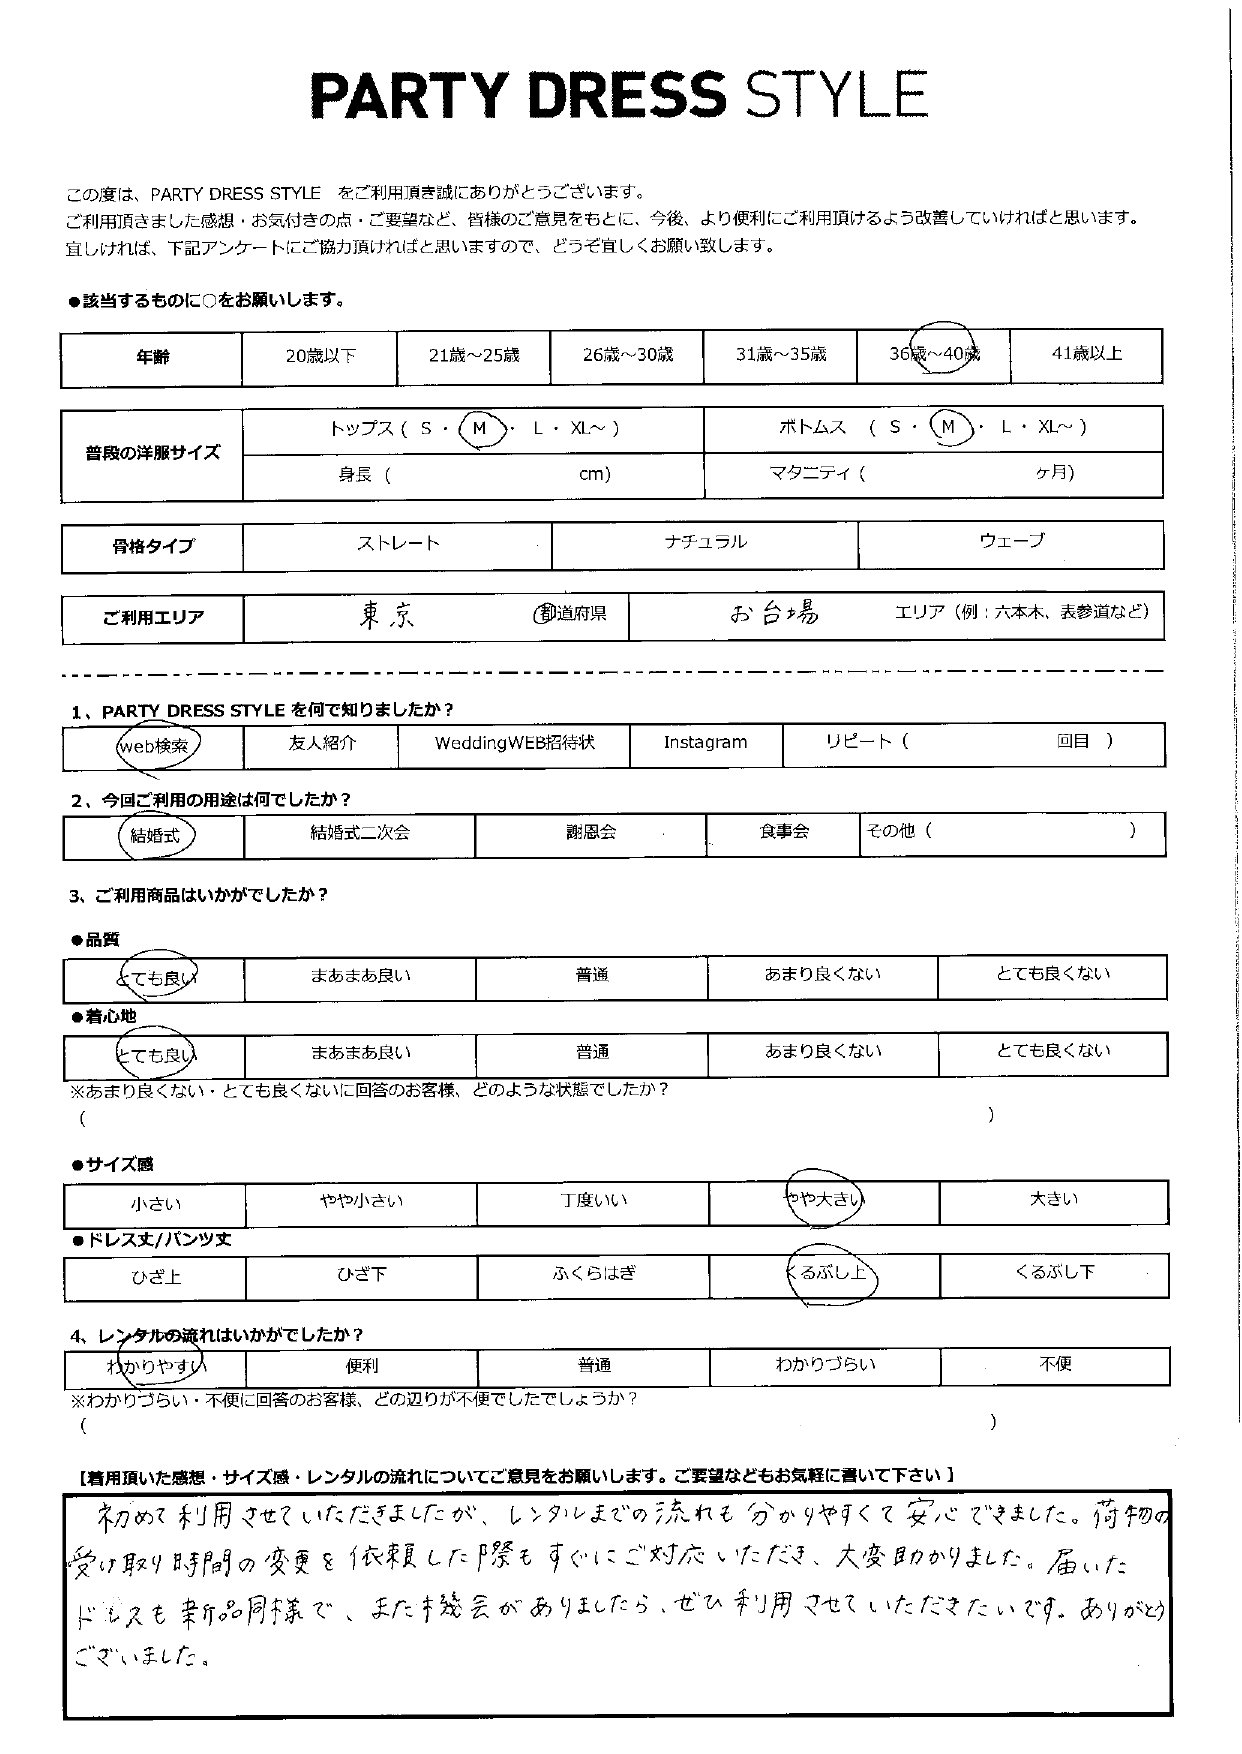 PARTY DRESS STYLE
この度は、PARTY DRESS STYLE をご利用頂き誠にありがとうございます。
ご利用頂きました感想・お気付きの点・ご要望など、皆様のご意見をもとに、今後、より便利にご利用頂けるよう改善していければと思います。
宜しければ、下記アンケートにご協力頂ければと思いますので、どうぞ宜しくお願い致します。
●該当するものに○をお願いします。
年齢 20歳以下 21歳～25歳 26歳～30歳 31歳～35歳 36歳～40歳 41歳以上
普段の洋服サイズ トップス ( S ・ M ・ L ・ XL～ ) ボトムス ( S ・ M ・ L ・ XL～ )
身長 ( cm) マタニティ ( ヶ月)
骨格タイプ ストレート ナチュラル ウェーブ
ご利用エリア 東京 都道府県 お台場 エリア（例：六本木、表参道など）
1、PARTY DRESS STYLE を何で知りましたか？
web検索 友人紹介 WeddingWEB招待状 Instagram リピート ( 回目 )
2、今回ご利用の用途は何でしたか？
結婚式 結婚式二次会 謝恩会 食事会 その他 ( )
3、ご利用商品はいかがでしたか？
●品質
とても良い まあまあ良い 普通 あまり良くない とても良くない
●着心地
とても良い まあまあ良い 普通 あまり良くない とても良くない
※あまり良くない・とても良くないに回答のお客様、どのような状態でしたか？
( )
●サイズ感
小さい やや小さい 丁度いい やや大きい 大きい
●ドレス丈/パンツ丈
ひざ上 ひざ下 ふくらはぎ くるぶし上 くるぶし下
4、レンタルの流れはいかがでしたか？
わかりやすい 便利 普通 わかりづらい 不便
※わかりづらい・不便に回答のお客様、どの辺りが不便でしたでしょうか？
( )
【着用頂いた感想・サイズ感・レンタルの流れについてご意見をお願いします。ご要望などもお気軽に書いて下さい】
初めて利用させていただきましたが、レンタルまでの流れも分かりやすくて安心できました。荷物の
受け取り時間の変更を依頼した際もすぐにご対応いただき、大変助かりました。届いた
ドレスも新品同様で、また機会がありましたら、ぜひ利用させていただきたいです。ありがとう
ございました。